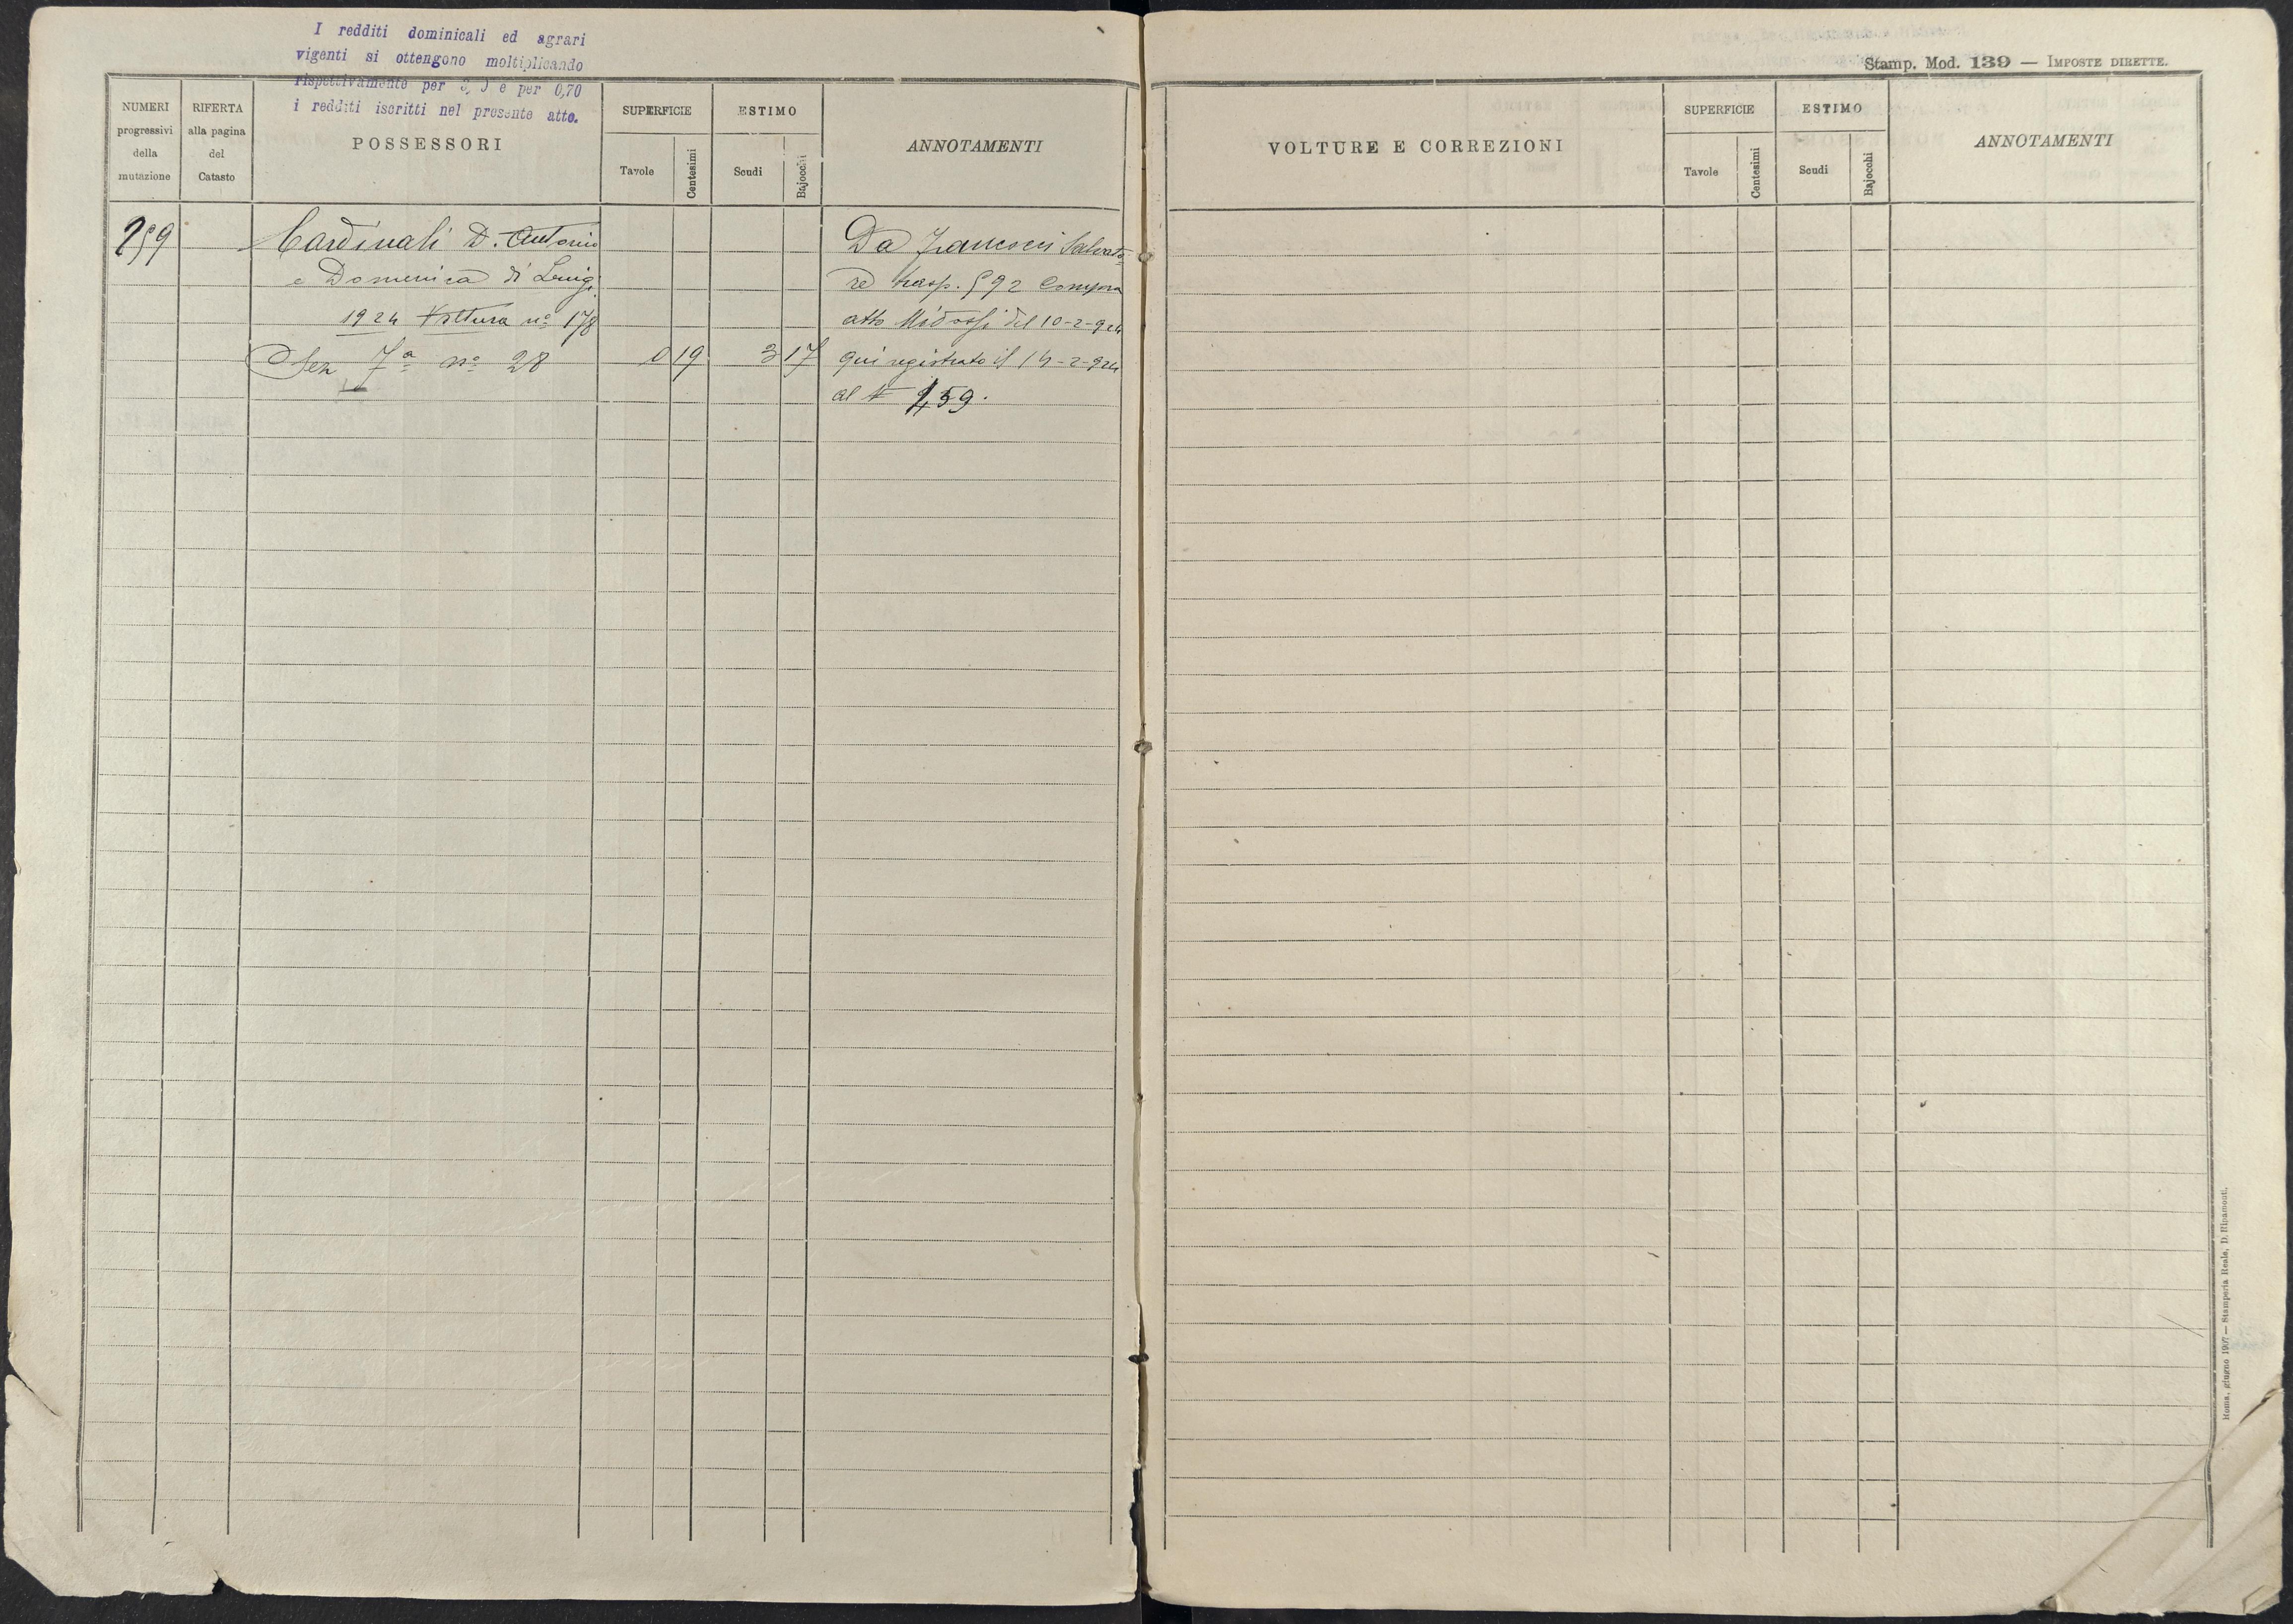 I redditi dominicali ed agrari
vigenti si ottengono moltiplicando
rispettivamente per e per 0,70
i redditi iscritti nel presente atto.
NUMERI
progressivi
della
mutazione
RIFERTA
alla pagina
del
Catasto
POSSESSORI
SUPERFICIE
Tavole
Centesimi
ESTIMO
Scudi
Bajocchi
ANNOTAMENTI
259
Cardinali D. Antonio
e Domenica di Luigi
1924 Voltura nº 178
Sez 7ª nº 28
0 19
3 17
Da Francesci Salvato
re trasp. 592 Compra
atto Midossi del 10-2-924
qui registrato il 14-2-924
al 459.
Stamp. Mod. 139 — IMPOSTE DIRETTE.
VOLTURE E CORREZIONI
SUPERFICIE
Tavole
Centesimi
ESTIMO
Scudi
Bajocchi
ANNOTAMENTI
Roma, giugno 1907 — Stamperia Reale, D. Ripamonti.